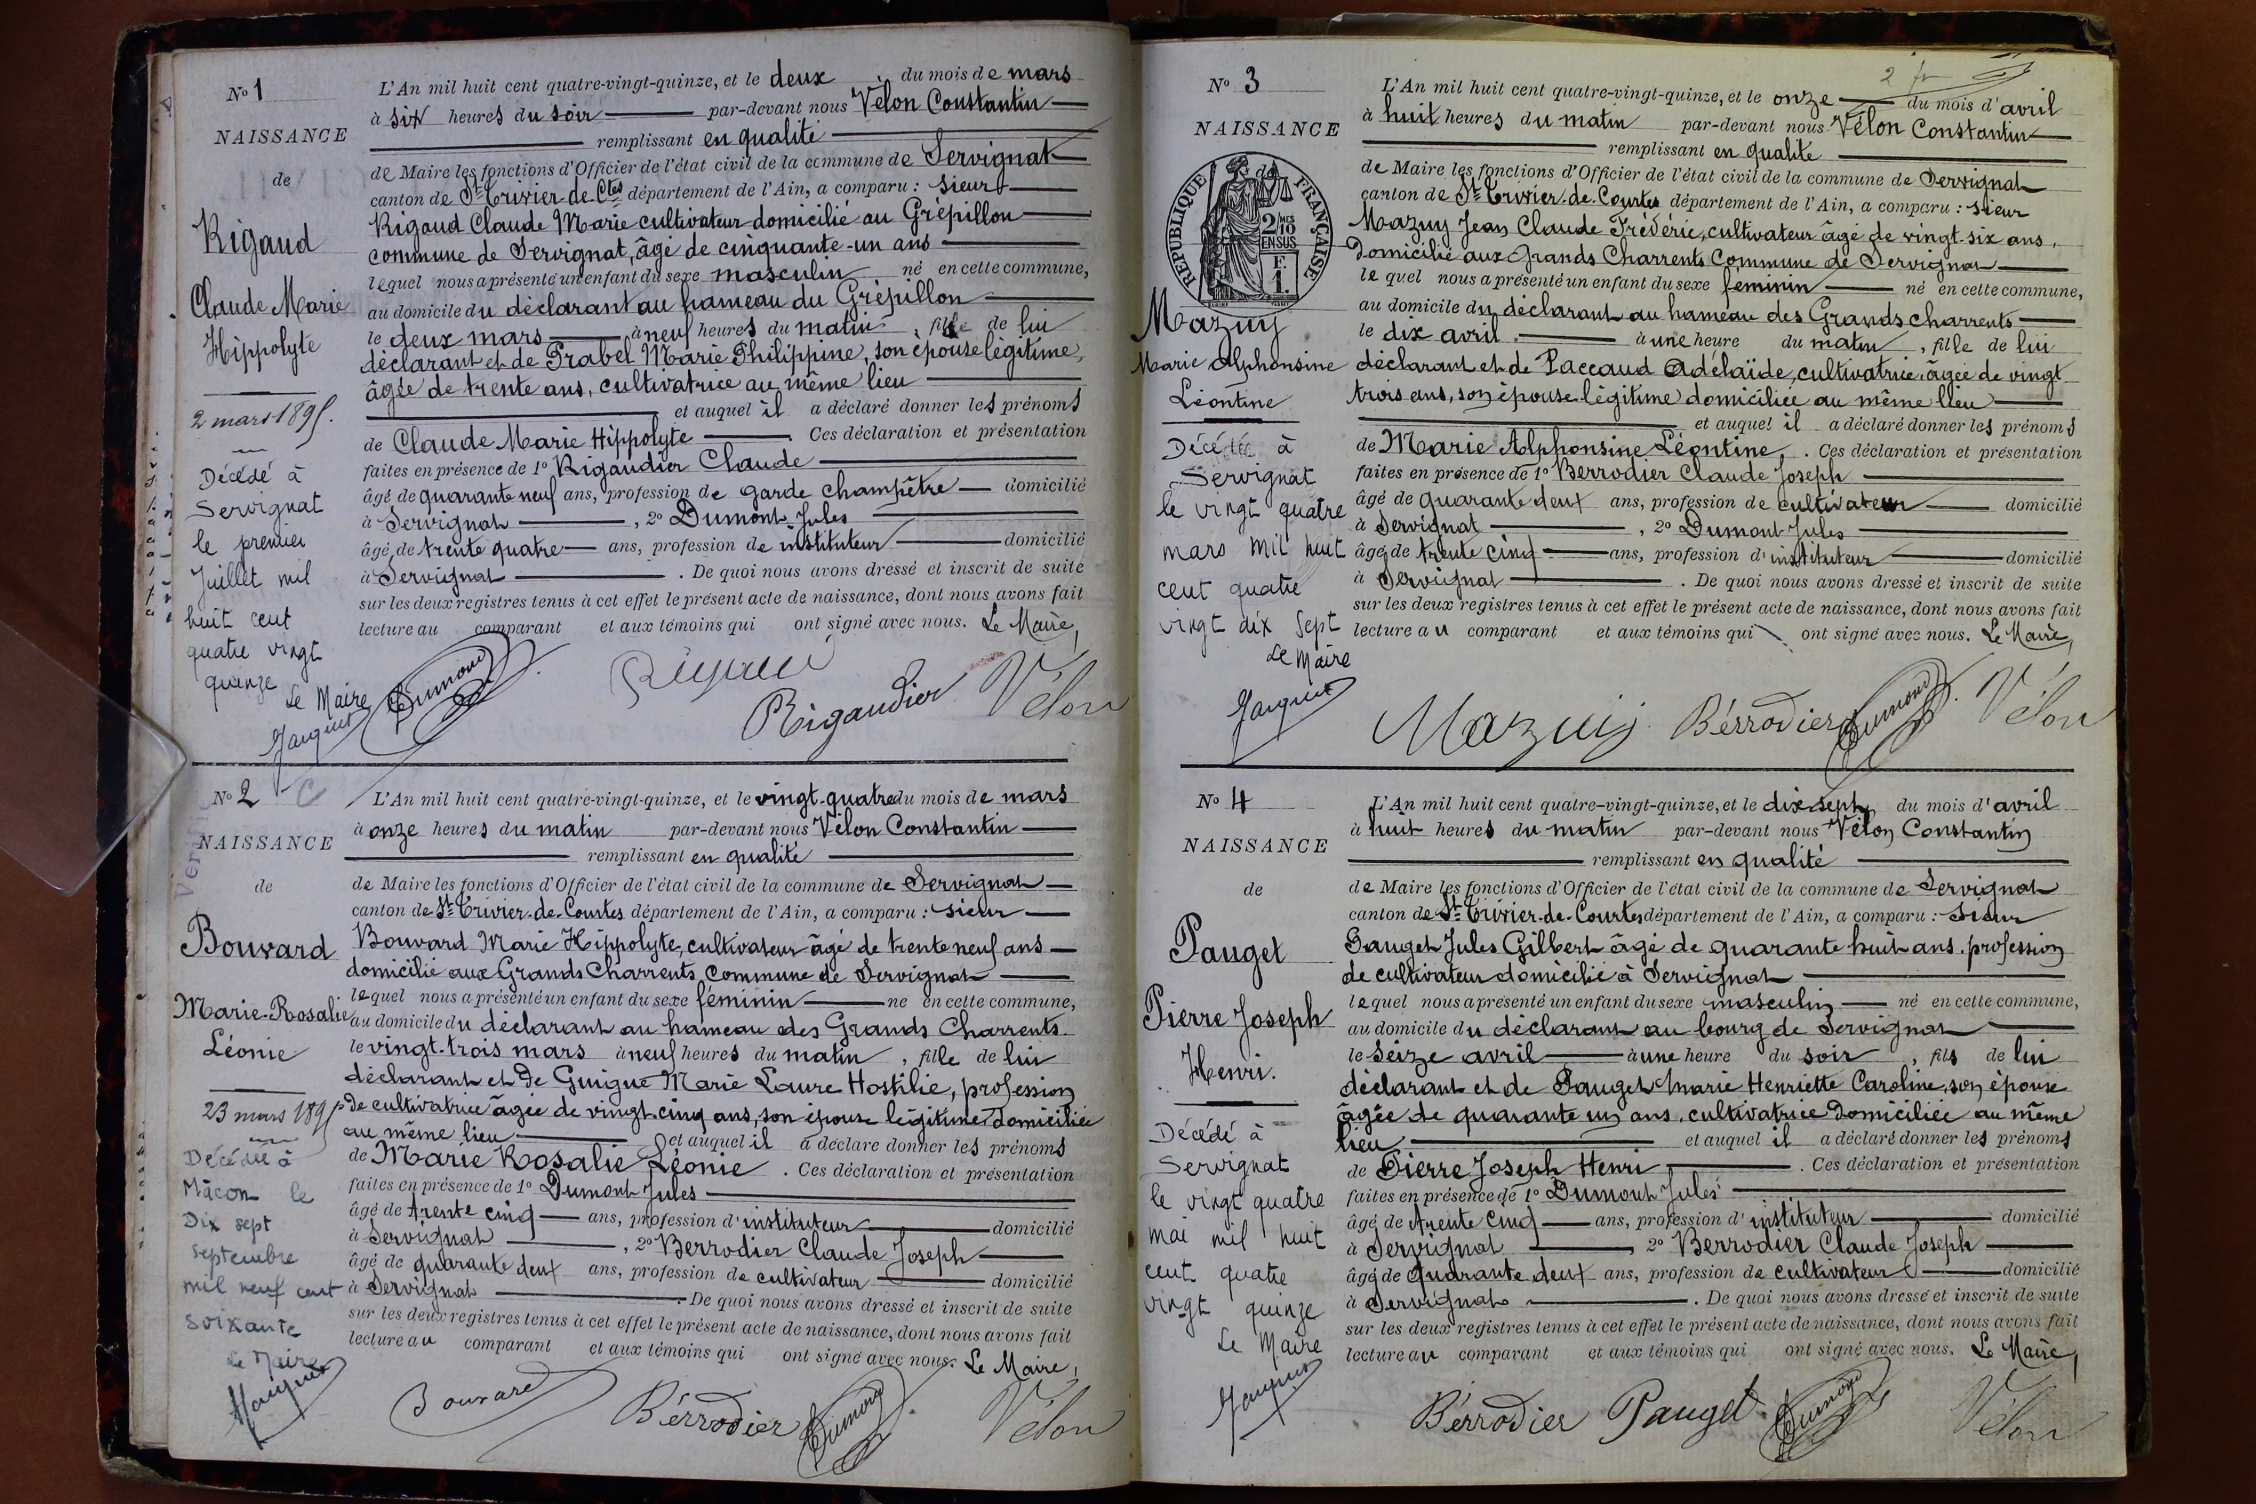 No 1
NAISSANCE
de
Rigaud
Claude Marie
Hippolyte
2 mars 1895.
Décédé à
Servignat
le premier
Juillet mil
huit cent
quatre vingt
quinze
Le Maire
L'An mil huit cent quatre-vingt-quinze, et le deux du mois de mars
à six heures du soir par-devant nous Vélon Constantin
remplissant en qualité
de Maire les fonctions d'Officier de l'état civil de la commune de Servignat
canton de St Trivier de Ctes département de l'Ain, a comparu : sieur
Rigaud Claude Marie cultivateur domicilié au Grépillon
commune de Servignat, âgé de cinquante-un ans
lequel nous a présenté un enfant du sexe masculin né en cette commune,
au domicile du déclarant au hameau du Grépillon
le deux mars à neuf heures du matin, fils de lui
déclarant et de Prabel Marie Philippine, son épouse légitime,
âgée de trente ans, cultivatrice au même lieu
et auquel il a déclaré donner les prénoms
de Claude Marie Hippolyte Ces déclaration et présentation
faites en présence de 1o Rigaudier Claude
âgé de quarante neuf ans, profession de garde champêtre domicilié
à Servignat , 2o Dumont Jules
âgé de trente quatre ans, profession de instituteur domicilié
à Servignat . De quoi nous avons dressé et inscrit de suite
sur les deux registres tenus à cet effet le présent acte de naissance, dont nous avons fait
lecture au comparant et aux témoins qui ont signé avec nous. Le Maire,
Dumont Rigaud Rigaudier Vélon
No 2
NAISSANCE
de
Bouvard
Marie-Rosalie
Léonie
23 mars 1895
Décédée à
Mâcon le
Dix sept
septembre
mil neuf cent
soixante
Le Maire
L'An mil huit cent quatre-vingt-quinze, et le vingt-quatre du mois de mars
à onze heures du matin par-devant nous Vélon Constantin
remplissant en qualité
de Maire les fonctions d'Officier de l'état civil de la commune de Servignat
canton de St Trivier-de-Courtes département de l'Ain, a comparu : sieur
Bouvard Marie Hippolyte, cultivateur âgé de trente neuf ans
domicilié aux Grands Charrents, commune de Servignat
lequel nous a présenté un enfant du sexe féminin né en cette commune,
au domicile du déclarant au hameau des Grands Charrents
le vingt-trois mars à neuf heures du matin , fille de lui
déclarant et de Guigue Marie Laure Hostilie, profession
de cultivatrice âgée de vingt-cinq ans, son épouse légitime domiciliée
au même lieu et auquel il a déclaré donner les prénoms
de Marie Rosalie Léonie . Ces déclaration et présentation
faites en présence de 1o Dumont Jules
âgé de trente cinq ans, profession d'instituteur domicilié
à Servignat , 2o Berrodier Claude Joseph
âgé de quarante deux ans, profession de cultivateur domicilié
à Servignat . De quoi nous avons dressé et inscrit de suite
sur les deux registres tenus à cet effet le présent acte de naissance, dont nous avons fait
lecture au comparant et aux témoins qui ont signé avec nous. Le Maire,
Bouvard Bérrodier Dumont Vélon
No 3
NAISSANCE
RÉPUBLIQUE FRANÇAISE
2 MES
10
EN SUS
F.
1.
Mazuy
Marie Alphonsine
Léontine
Décédée à
Servignat
le vingt quatre
mars mil huit
cent quatre
vingt dix sept
Le Maire
2 fr
L'An mil huit cent quatre-vingt-quinze, et le onze du mois d'avril
à huit heures du matin par-devant nous Vélon Constantin
remplissant en qualité
de Maire les fonctions d'Officier de l'état civil de la commune de Servignat
canton de St Trivier-de-Courtes département de l'Ain, a comparu : sieur
Mazuy Jean Claude Frédéric, cultivateur âgé de vingt-six ans,
domicilié aux Grands Charrents Commune de Servignat
lequel nous a présenté un enfant du sexe féminin né en cette commune,
au domicile du déclarant au hameau des Grands charrents
le dix avril à une heure du matin , fille de lui
déclarant et de Paccaud Adélaïde, cultivatrice, âgée de vingt
trois ans, son épouse légitime domiciliée au même lieu
et auquel il a déclaré donner les prénoms
de Marie Alphonsine Léontine . Ces déclaration et présentation
faites en présence de 1o Berrodier Claude Joseph
âgé de quarante deux ans, profession de cultivateur domicilié
à Servignat , 2o Dumont Jules
âgé de trente cinq ans, profession d'instituteur domicilié
à Servignat . De quoi nous avons dressé et inscrit de suite
sur les deux registres tenus à cet effet le présent acte de naissance, dont nous avons fait
lecture au comparant et aux témoins qui ont signé avec nous. Le Maire,
Mazuij Bérrodier Dumont Vélon
No 4
NAISSANCE
de
Pauget
Pierre Joseph
Henri.
Décédé à
Servignat
le vingt quatre
mai mil huit
cent quatre
vingt quinze
Le Maire
L'An mil huit cent quatre-vingt-quinze, et le dix-sept du mois d'avril
à huit heures du matin par-devant nous Vélon Constantin
remplissant en qualité
de Maire les fonctions d'Officier de l'état civil de la commune de Servignat
canton de St Trivier-de-Courtes département de l'Ain, a comparu : sieur
Pauget Jules Gilbert âgé de quarante huit ans. profession
de cultivateur domicilié à Servignat
lequel nous a présenté un enfant du sexe masculin né en cette commune,
au domicile du déclarant au bourg de Servignat
le seize avril à une heure du soir , fils de lui
déclarant et de Pauget Marie Henriette Caroline, son épouse
âgée de quarante un ans, cultivatrice domiciliée au même
lieu et auquel il a déclaré donner les prénoms
de Pierre Joseph Henri . Ces déclaration et présentation
faites en présence de 1o Dumont Jules
âgé de trente cinq ans, profession d'instituteur domicilié
à Servignat , 2o Berrodier Claude Joseph
âgé de quarante deux ans, profession de cultivateur domicilié
à Servignat . De quoi nous avons dressé et inscrit de suite
sur les deux registres tenus à cet effet le présent acte de naissance, dont nous avons fait
lecture au comparant et aux témoins qui ont signé avec nous. Le Maire,
Bérrodier Pauget Dumont Vélon